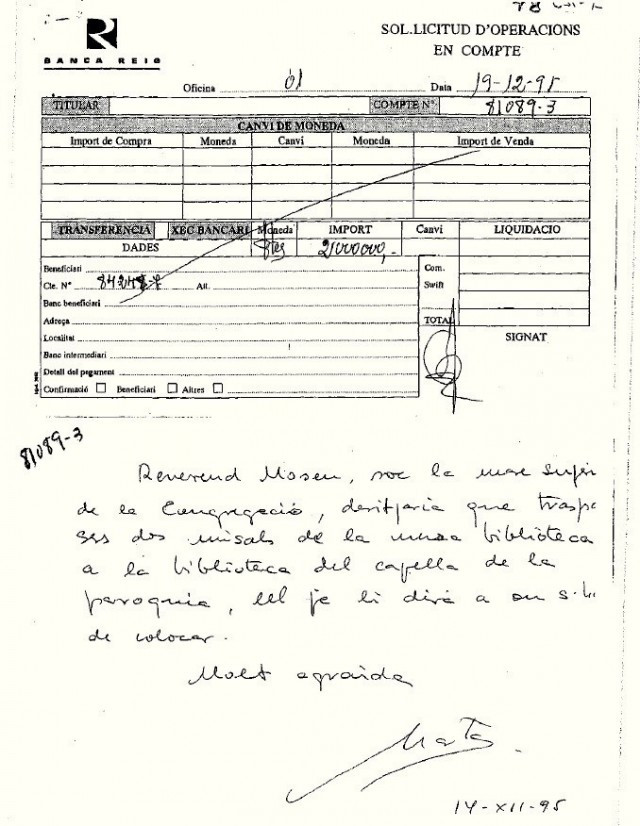 BANCA REIG
SOL.LICITUD D'OPERACIONS
EN COMPTE
Oficina 01 Data 19-12-95
TITULAR COMPTE Nº 81089-3
CANVI DE MONEDA
Import de Compra Moneda Canvi Moneda Import de Venda
TRANSFERENCIA XEC BANCARI Moneda IMPORT Canvi LIQUIDACIO
DADES Ptes 2000000,-
Beneficiari Com.
Cte. Nº At. Swift
Banc beneficiari
Adreça TOTAL
Localitat SIGNAT
Banc intermediari
Detall del pagament
Confirmació Beneficiari Altres
81089-3
Reverend Mosen, soc la mare super
de la Congregació, desitjaria que traspa
ses dos misals de la meva biblioteca
a la biblioteca del capella de la
paroquia, ell ja li dirà a on s.h.
de colocar.
Molt agraida
Marta
14-XII-95